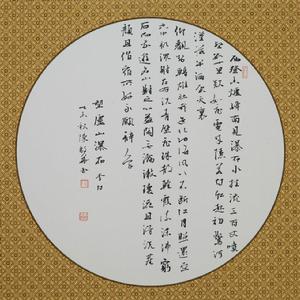 西登香爐峰南見瀑布水掛流三百丈噴
壑數十里欻如飛電來隱若白虹起初驚河
漢落半灑雲天裏
仰觀勢轉雄壯哉造化功海風吹不斷江月照還空
空中亂潈射左右洗青壁飛珠散輕霞流沫沸穹
石而我樂名山對之心益閑無論漱瓊液且得洗塵
顏且諧宿所好永願辭人間
望廬山瀑布 李白
秋 陳 書